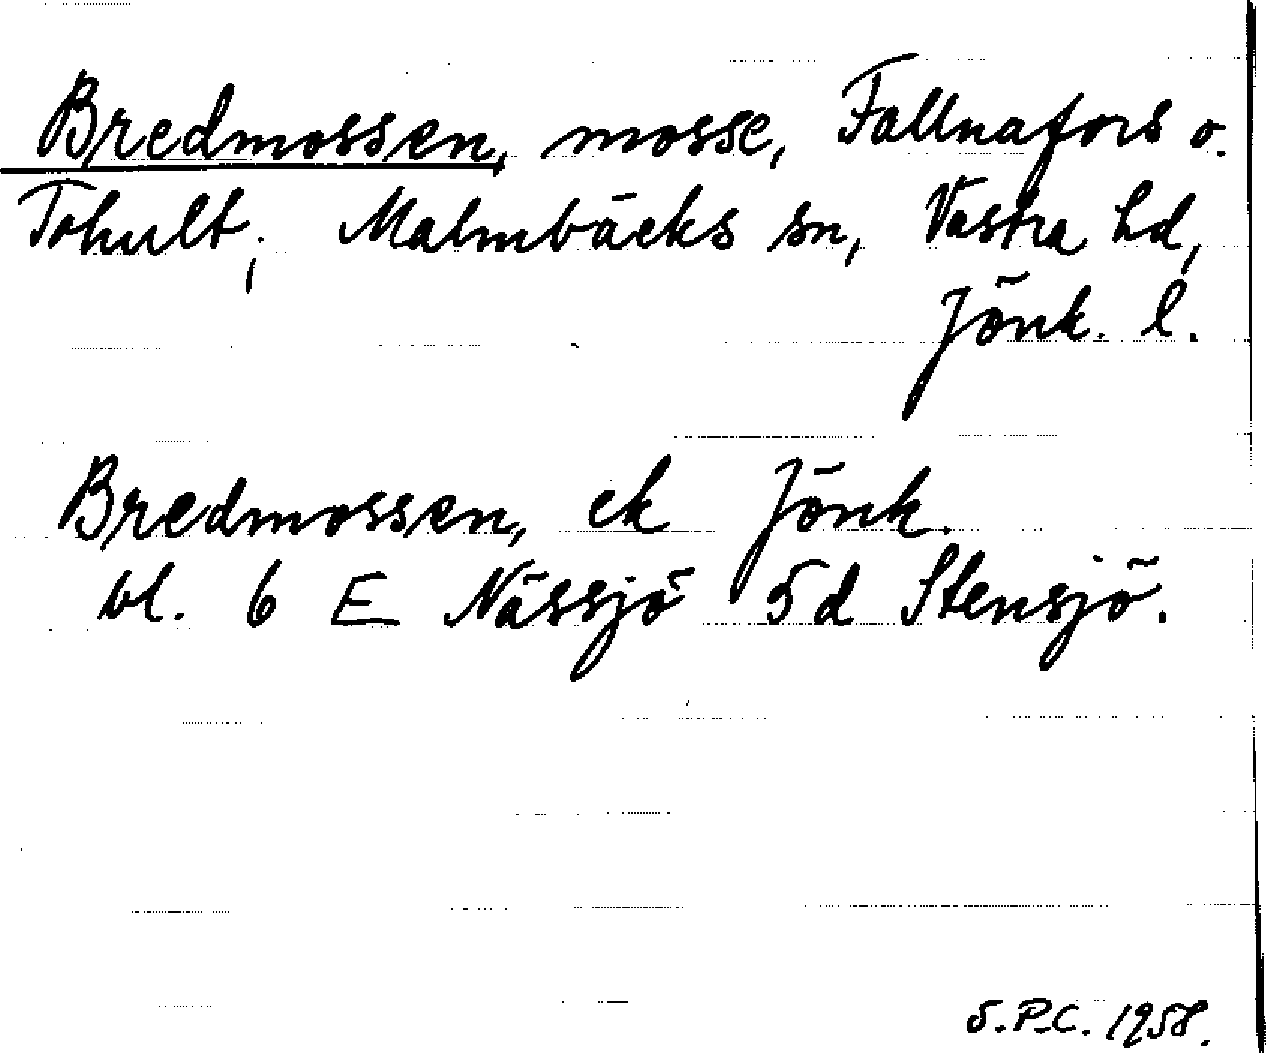 Bredmossen, mosse, Fallnafors o.
Tohult, Malmbäcks sn, Västra hd,
Jönk. l.
Bredmossen, ek Jönk.
bl. 6 E Nässjö 5d Stensjö.
S.P.C. 1958.